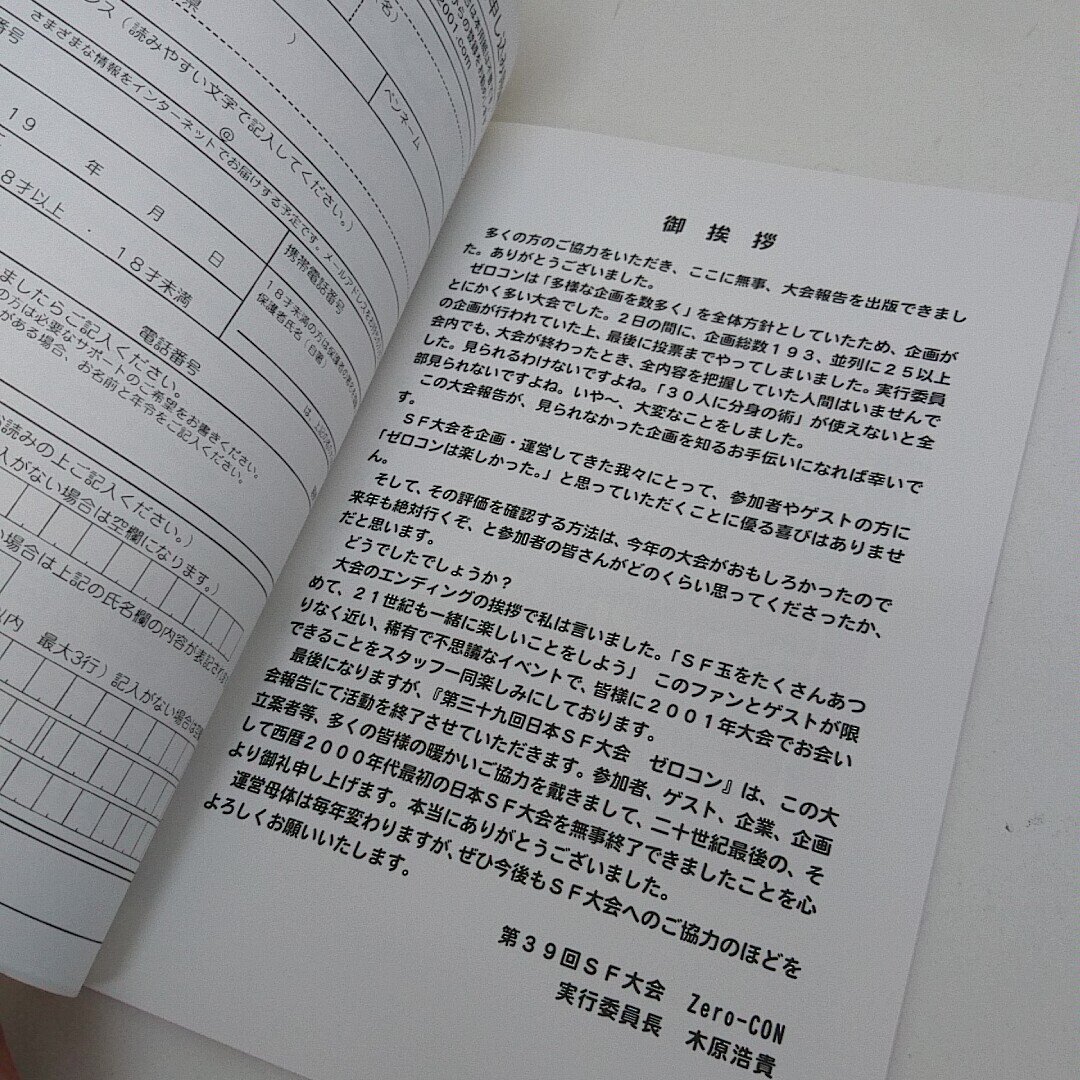 県
)
名)
2001.com
ンス(読みやすい文字で記入してください。)
@
ペンネーム
番号
さまざまな情報をインターネットでお届けする予定です。メールアドレスをお持ちの
19
年
月
日
8才以上 . 18才未満
携帯電話番号
18才未満の方は保護者の
保護者氏名(自署)
電話番号
ましたらご記入ください。
の方は必要なサポートのご希望をお書きください。
がある場合、
お名前と年令をご記入ください。
お読みの上ご記入ください。)
入がない場合は空欄になります。)
い場合は上記の氏名欄の内容が表記され
以内 最大3行)記入がない場合は空
御挨拶
多くの方のご協力をいただき、ここに無事、大会報告を出版できまし
た。ありがとうございました。
ゼロコンは「多様な企画を数多く」を全体方針としていたため、企画が
とにかく多い大会でした。2日の間に、企画総数193、並列に25以上
の企画が行われていた上、最後に投票までやってしまいました。実行委員
会内でも、大会が終わったとき、全内容を把握していた人間はいませんで
した。見られるわけないですよね。「30人に分身の術」が使えないと全
部見られないですよね。いや〜、大変なことをしました。
この大会報告が、見られなかった企画を知るお手伝いになれば幸いで
す。
SF大会を企画・運営してきた我々にとって、参加者やゲストの方に
「ゼロコンは楽しかった。」と思っていただくことに優る喜びはありませ
ん。
そして、その評価を確認する方法は、今年の大会がおもしろかったので
来年も絶対行くぞ、と参加者の皆さんがどのくらい思ってくださったか、
だと思います。
どうでしたでしょうか?
大会のエンディングの挨拶で私は言いました。「SF玉をたくさんあつ
めて、21世紀も一緒に楽しいことをしよう」 このファンとゲストが限
りなく近い、稀有で不思議なイベントで、皆様に2001年大会でお会い
できることをスタッフ一同楽しみにしております。
最後になりますが、『第三十九回日本SF大会 ゼロコン』は、この大
会報告にて活動を終了させていただきます。参加者、ゲスト、企業、企画
立案者等、多くの皆様の暖かいご協力を戴きまして、二十世紀最後の、そ
して西暦2000年代最初の日本SF大会を無事終了できましたことを心
より御礼申し上げます。本当にありがとうございました。
運営母体は毎年変わりますが、ぜひ今後もSF大会へのご協力のほどを
よろしくお願いいたします。
第39回SF大会 Zero-CON
実行委員長 木原浩貴